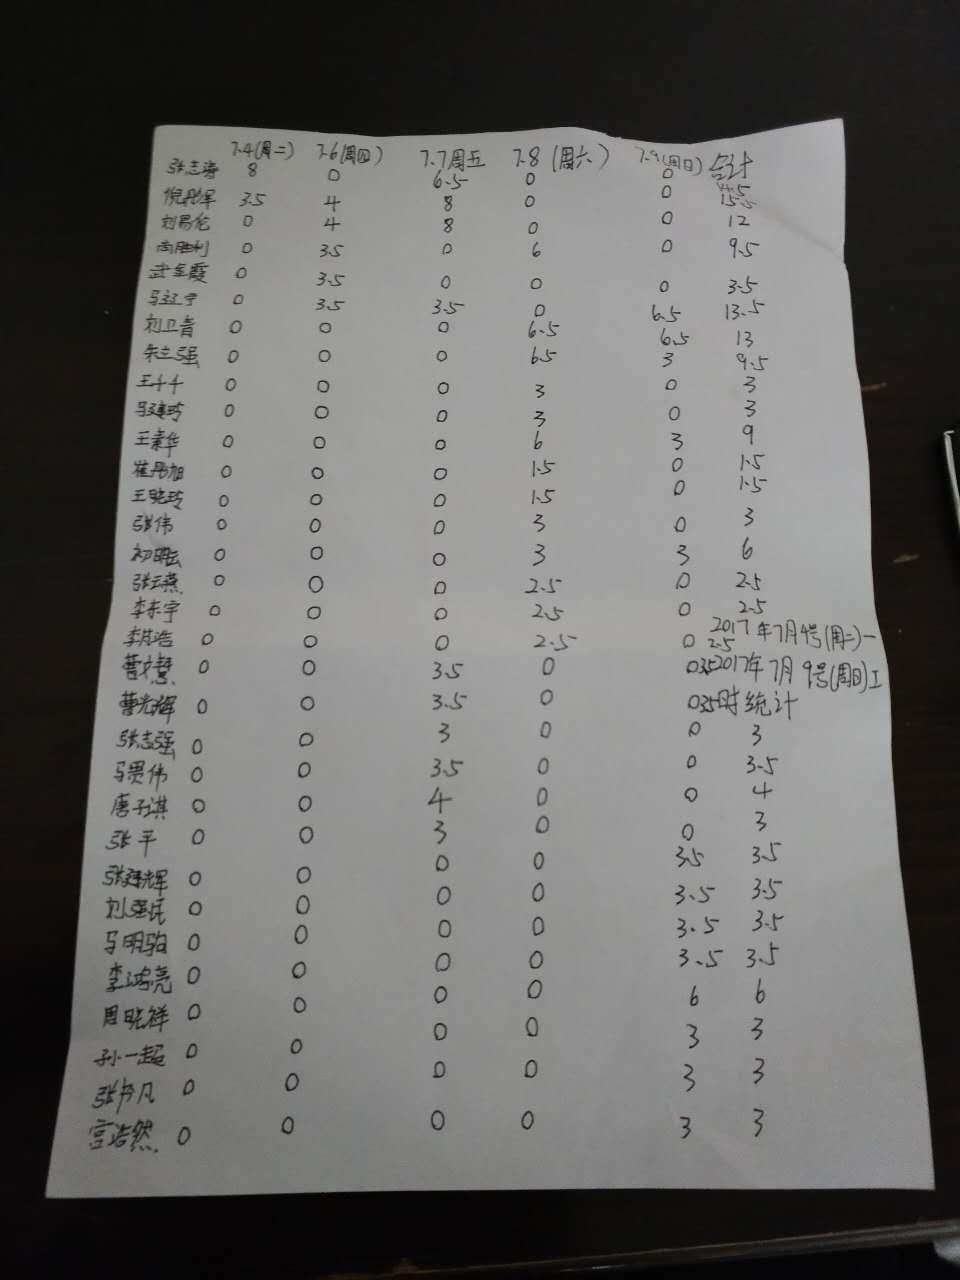 7.4(周二) 7.6(周四) 7.7周五 7.8 (周六) 7.9(周日) 合计
张志涛 8 0 6.5 0 0 14.5
倪彤军 3.5 4 8 0 0 15.5
刘易伦 0 4 8 0 0 12
尚胜利 0 3.5 0 6 0 9.5
武金霞 0 3.5 0 0 0 3.5
马辽宁 0 3.5 3.5 0 6.5 13.5
刘卫青 0 0 0 6.5 6.5 13
朱立强 0 0 0 6.5 3 9.5
王千千 0 0 0 3 0 3
马建玲 0 0 0 3 0 3
王素华 0 0 0 6 3 9
崔丹旭 0 0 0 1.5 0 1.5
王晓玲 0 0 0 1.5 0 1.5
张伟 0 0 0 3 0 3
初明云 0 0 0 3 3 6
张玉燕 0 0 0 2.5 0 2.5
李东宇 0 0 0 2.5 0 2.5
李其浩 0 0 0 2.5 0 2.5
2017年7月4号(周二)一
曹文慧 0 0 3.5 0 0 3.5
2017年7月9号(周日)工
曹光辉 0 0 3.5 0 0 3.5
时统计
张志强 0 0 3 0 0 3
马贤伟 0 0 3.5 0 0 3.5
唐子淇 0 0 4 0 0 4
张平 0 0 3 0 0 3
张辉 0 0 0 0 3.5 3.5
刘强民 0 0 0 0 3.5 3.5
马明驹 0 0 0 0 3.5 3.5
李鸿亮 0 0 0 0 3.5 3.5
周晓祥 0 0 0 0 6 6
孙一超 0 0 0 0 3 3
张书凡 0 0 0 0 3 3
宫浩然 0 0 0 0 3 3